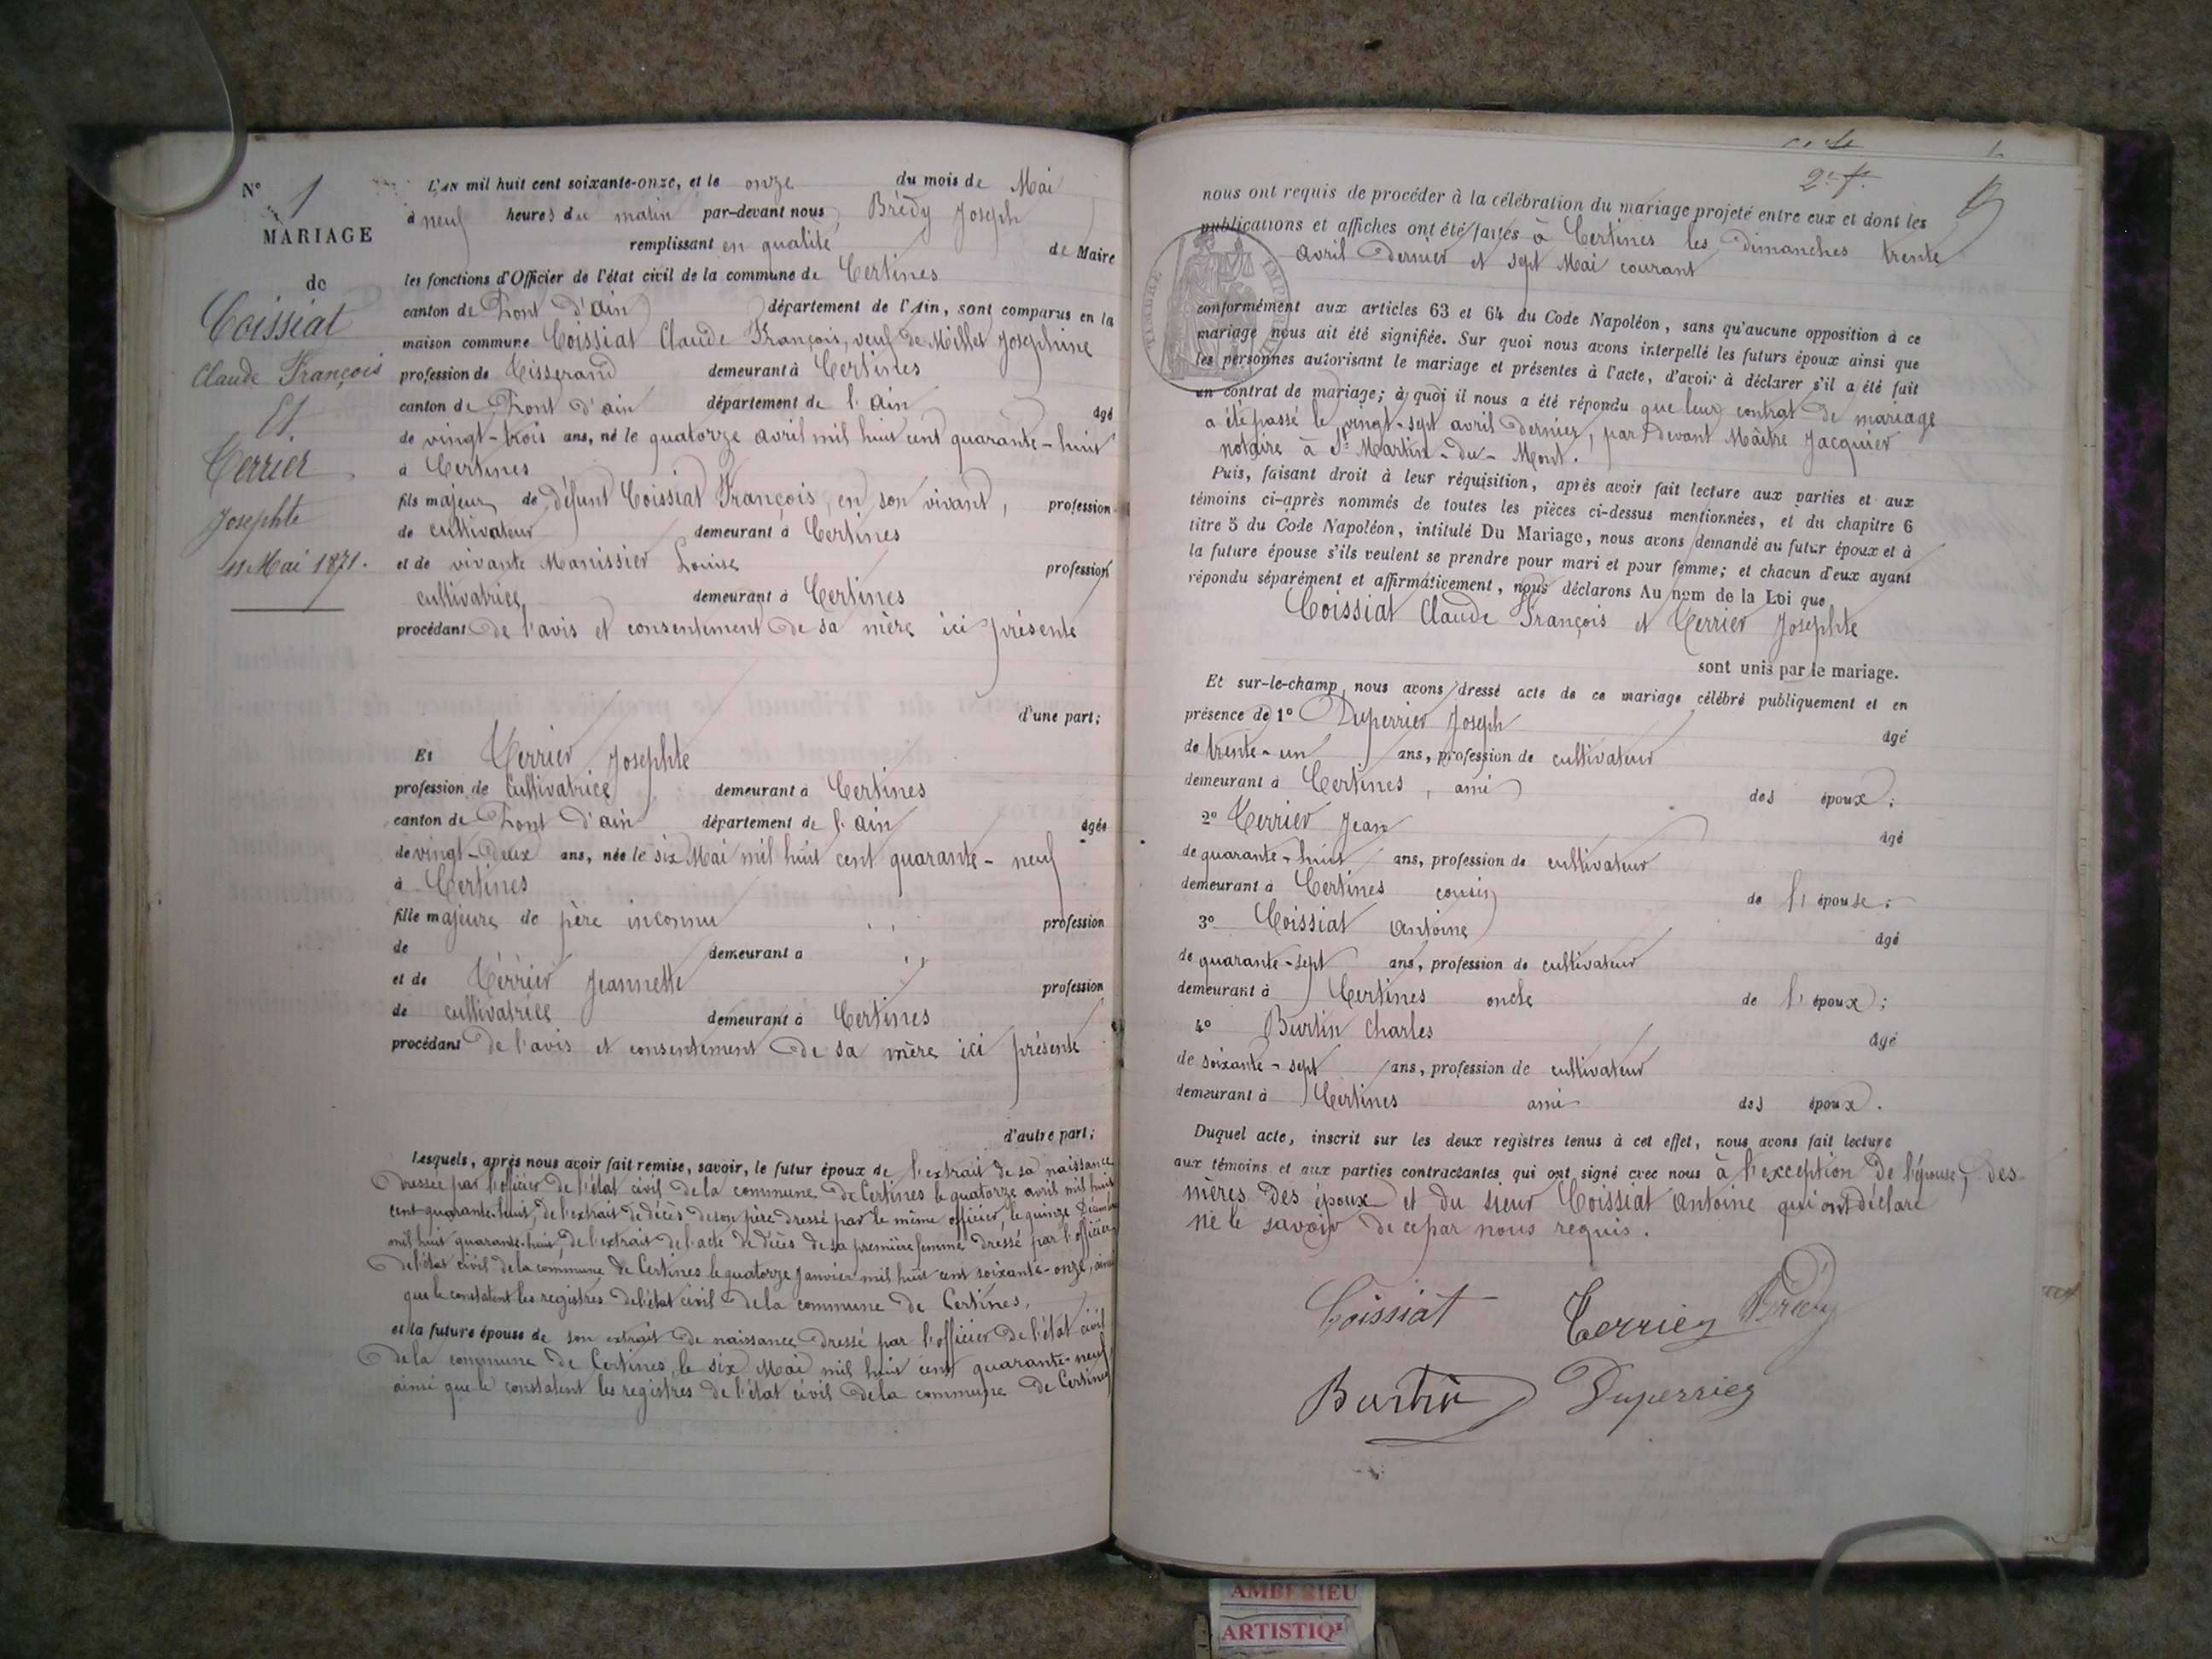 N° 1
MARIAGE
de
Coissiat
Claude François
Et
Terrier
Josephte
11 Mai 1871.
L'AN mil huit cent soixante-onze, et le onze du mois de Mai
à neuf heures du matin par-devant nous Brédy Joseph
remplissant en qualité de Maire
les fonctions d'Officier de l'état civil de la commune de Certines
canton de Pont d'ain département de l'Ain, sont comparus en la
maison commune Coissiat Claude François, veuf de Millet Josephine
profession de Tisserand demeurant à Certines
canton de Pont d'ain département de l'ain âgé
de vingt-trois ans, né le quatorze avril mil huit cent quarante-huit
à Certines
fils majeur de défunt Coissiat François, en son vivant, profession
de cultivateur demeurant à Certines
et de vivante Manissier Louise profession
cultivatrice demeurant à Certines
procédant de l'avis et consentement de sa mère ici présente
d'une part;
Et Terrier Josephte
profession de Cultivatrice demeurant à Certines
canton de Pont d'ain département de l'ain âgée
de vingt-deux ans, née le six Mai mil huit cent quarante-neuf
à Certines
fille majeure de père inconnu profession
de demeurant à
et de Terrier Jeannette profession
de cultivatrice demeurant à Certines
procédant de l'avis et consentement de sa mère ici présente
d'autre part;
Lesquels, après nous avoir fait remise, savoir, le futur époux de l'extrait de sa naissance
dressée par l'officier de l'état civil de la commune de Certines le quatorze avril mil huit
cent quarante-huit, de l'extrait de décès de son père dressé par le même officier, le quinze Décembre
mil huit quarante-huit, de l'extrait de l'acte de décès de sa première femme dressé par l'officier
de l'état civil de la commune de Certines le quatorze Janvier mil huit cent soixante-onze, ainsi
que le constatent les registres de l'état civil de la commune de Certines,
et la future épouse de son extrait de naissance dressé par l'officier de l'état civil
de la commune de Certines, le six Mai mil huit cent quarante-neuf
ainsi que le constatent les registres de l'état civil de la commune de Certines
2e f.
nous ont requis de procéder à la célébration du mariage projeté entre eux et dont les
publications et affiches ont été faites à Certines les dimanches trente
avril dernier et sept Mai courant
conformément aux articles 63 et 64 du Code Napoléon, sans qu'aucune opposition à ce
mariage nous ait été signifiée. Sur quoi nous avons interpellé les futurs époux ainsi que
les personnes autorisant le mariage et présentes à l'acte, d'avoir à déclarer s'il a été fait
un contrat de mariage; à quoi il nous a été répondu que leur contrat de mariage
a été passé le vingt-sept avril dernier, par devant Maître Jacquier
notaire à St Martin-du-Mont.
Puis, faisant droit à leur réquisition, après avoir fait lecture aux parties et aux
témoins ci-après nommés de toutes les pièces ci-dessus mentionnées, et du chapitre 6
titre 5 du Code Napoléon, intitulé Du Mariage, nous avons demandé au futur époux et à
la future épouse s'ils veulent se prendre pour mari et pour femme; et chacun d'eux ayant
répondu séparément et affirmativement, nous déclarons Au nom de la Loi que
Coissiat Claude François et Terrier Josephte
sont unis par le mariage.
Et sur-le-champ, nous avons dressé acte de ce mariage célébré publiquement et en
présence de 1° Duperrier Joseph âgé
de trente-un ans, profession de cultivateur
demeurant à Certines, ami des époux;
2° Terrier Jean âgé
de quarante-huit ans, profession de cultivateur
demeurant à Certines cousin de l'épouse;
3° Coissiat Antoine âgé
de quarante-sept ans, profession de cultivateur
demeurant à Certines oncle de l'époux;
4° Burtin Charles âgé
de soixante-sept ans, profession de cultivateur
demeurant à Certines ami des époux.
Duquel acte, inscrit sur les deux registres tenus à cet effet, nous avons fait lecture
aux témoins et aux parties contractantes qui ont signé avec nous à l'exception de l'épouse, des
mères des époux et du sieur Coissiat Antoine qui ont déclaré
ne le savoir de ce par nous requis.
Coissiat Terrier Brédy
Burtin Duperrier
AMBERIEU
ARTISTIQ